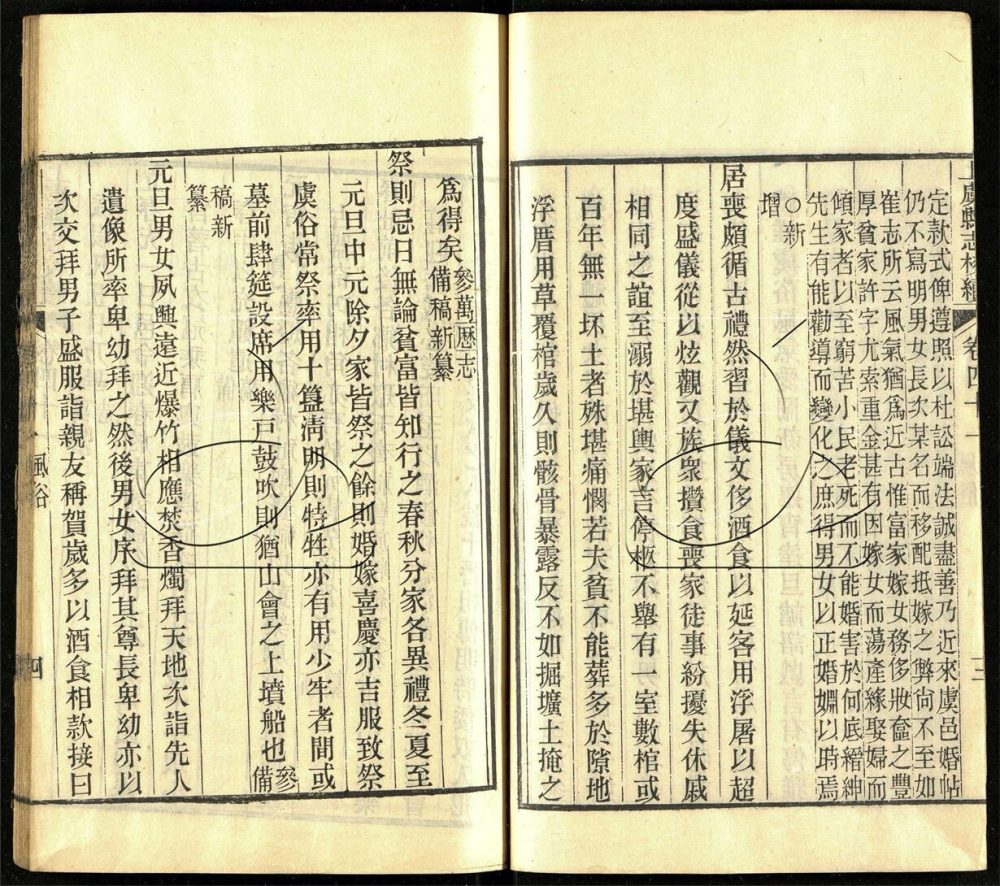 上虞縣志校續 卷四十一 三
定款式俾遵照以杜訟端法誠盡善乃近來虞邑婚帖
仍不寫明男女長次某名而移配抵嫁之弊尙不至如
崔志所云風氣猶爲近古惟富家嫁女務侈妝奩之豐
厚貧家許字尤索重金甚有因嫁女而蕩產緣娶婦而
傾家者以至窮苦小民老死而不能婚害於何底縉紳
先生有能勸導而變化之庶得男女以正婚姻以時焉
○新
增
居喪頗循古禮然習於儀文侈酒食以延客用浮屠以超
度盛儀從以炫觀又族衆攢食喪家徒事紛擾失休戚
相同之誼至溺於堪輿家言停柩不舉有一室數棺或
百年無一坏土者殊堪痛憫若夫貧不能葬多於隙地
浮厝用草覆棺歲久則骸骨暴露反不如掘壙土掩之
爲得矣參萬歷志
備稿新纂
祭則忌日無論貧富皆知行之春秋分家各異禮冬夏至
元旦中元除夕家皆祭之餘則婚嫁喜慶亦吉服致祭
虞俗常祭率用十簋淸明則特牲亦有用少牢者間或
墓前肆筵設席用樂戶鼓吹則猶山會之上墳船也參備
稿新
纂
元旦男女夙興遠近爆竹相應焚香燭拜天地次詣先人
遺像所率卑幼拜之然後男女序拜其尊長卑幼亦以
次交拜男子盛服詣親友稱賀歲多以酒食相款接曰
風俗 四